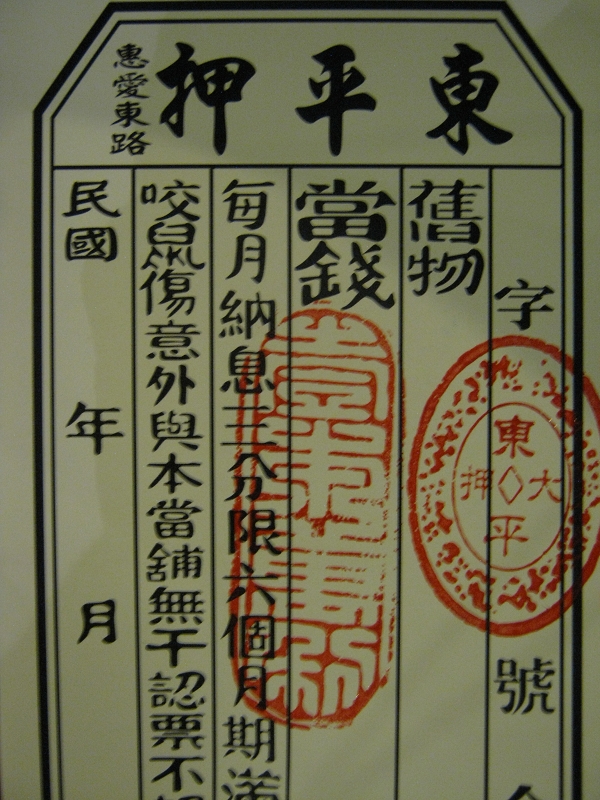 東平押
惠愛東路
字 號
舊物
當錢
每月納息三分限六個月期滿
咬鼠傷意外與本當舖無干認票不
民國 年 月
東平大押